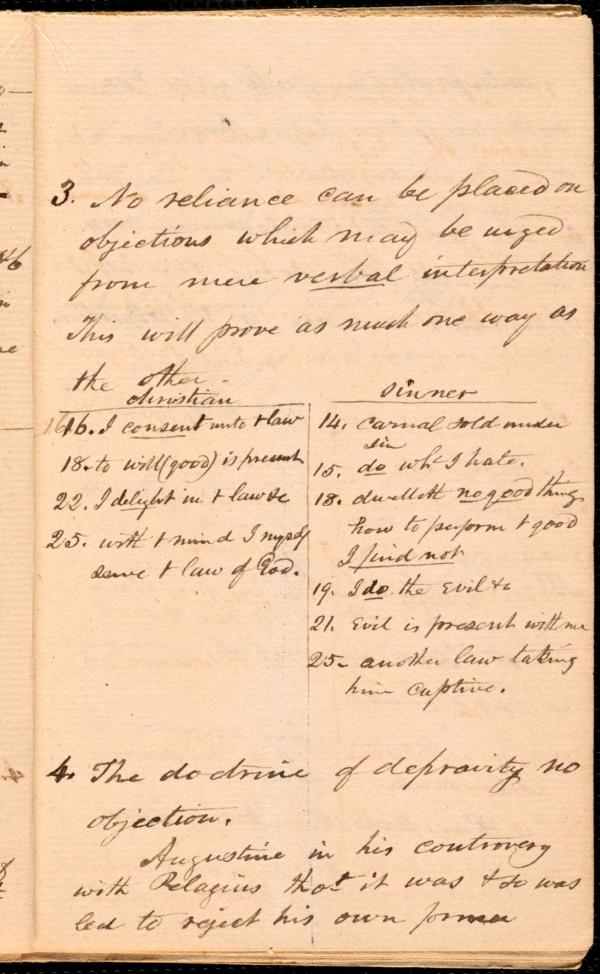 3. No reliance can be placed on
objections which may be urged
from mere verbal interpretation
This will prove as much one way as
the other.
christian
16. I consent unto t law
18. to will (good) is present
22. I delight in t law &c
25. with t mind I myself
serve t law of God.
sinner
14. carnal sold under
sin
15. do wht I hate.
18. dwelleth no good thing
how to perform t good
I find not
19. I do the Evil &c
21. Evil is present with me
25. another law taking
him captive.
4. The doctrine of depravity no
objection.
Augustine in his controversy
with Pelagius thot it was & so was
led to reject his own former